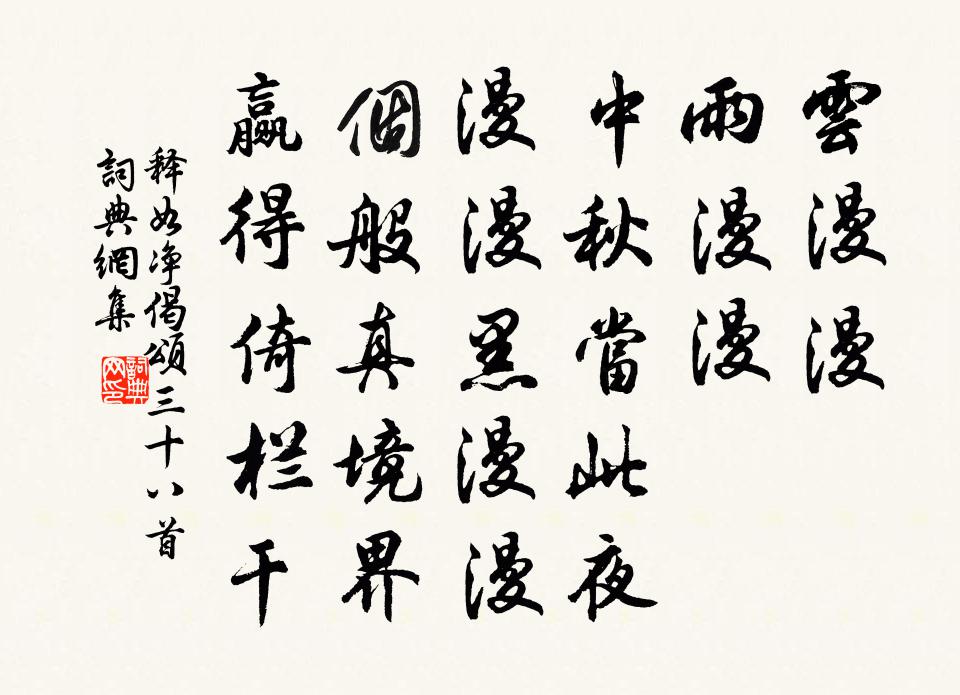 雲漫漫
雨漫漫
中秋當此夜
漫漫黑漫漫
個般真境界
贏得倚栏干
释如净偈頌三十八首
詞典網集
詞典网印